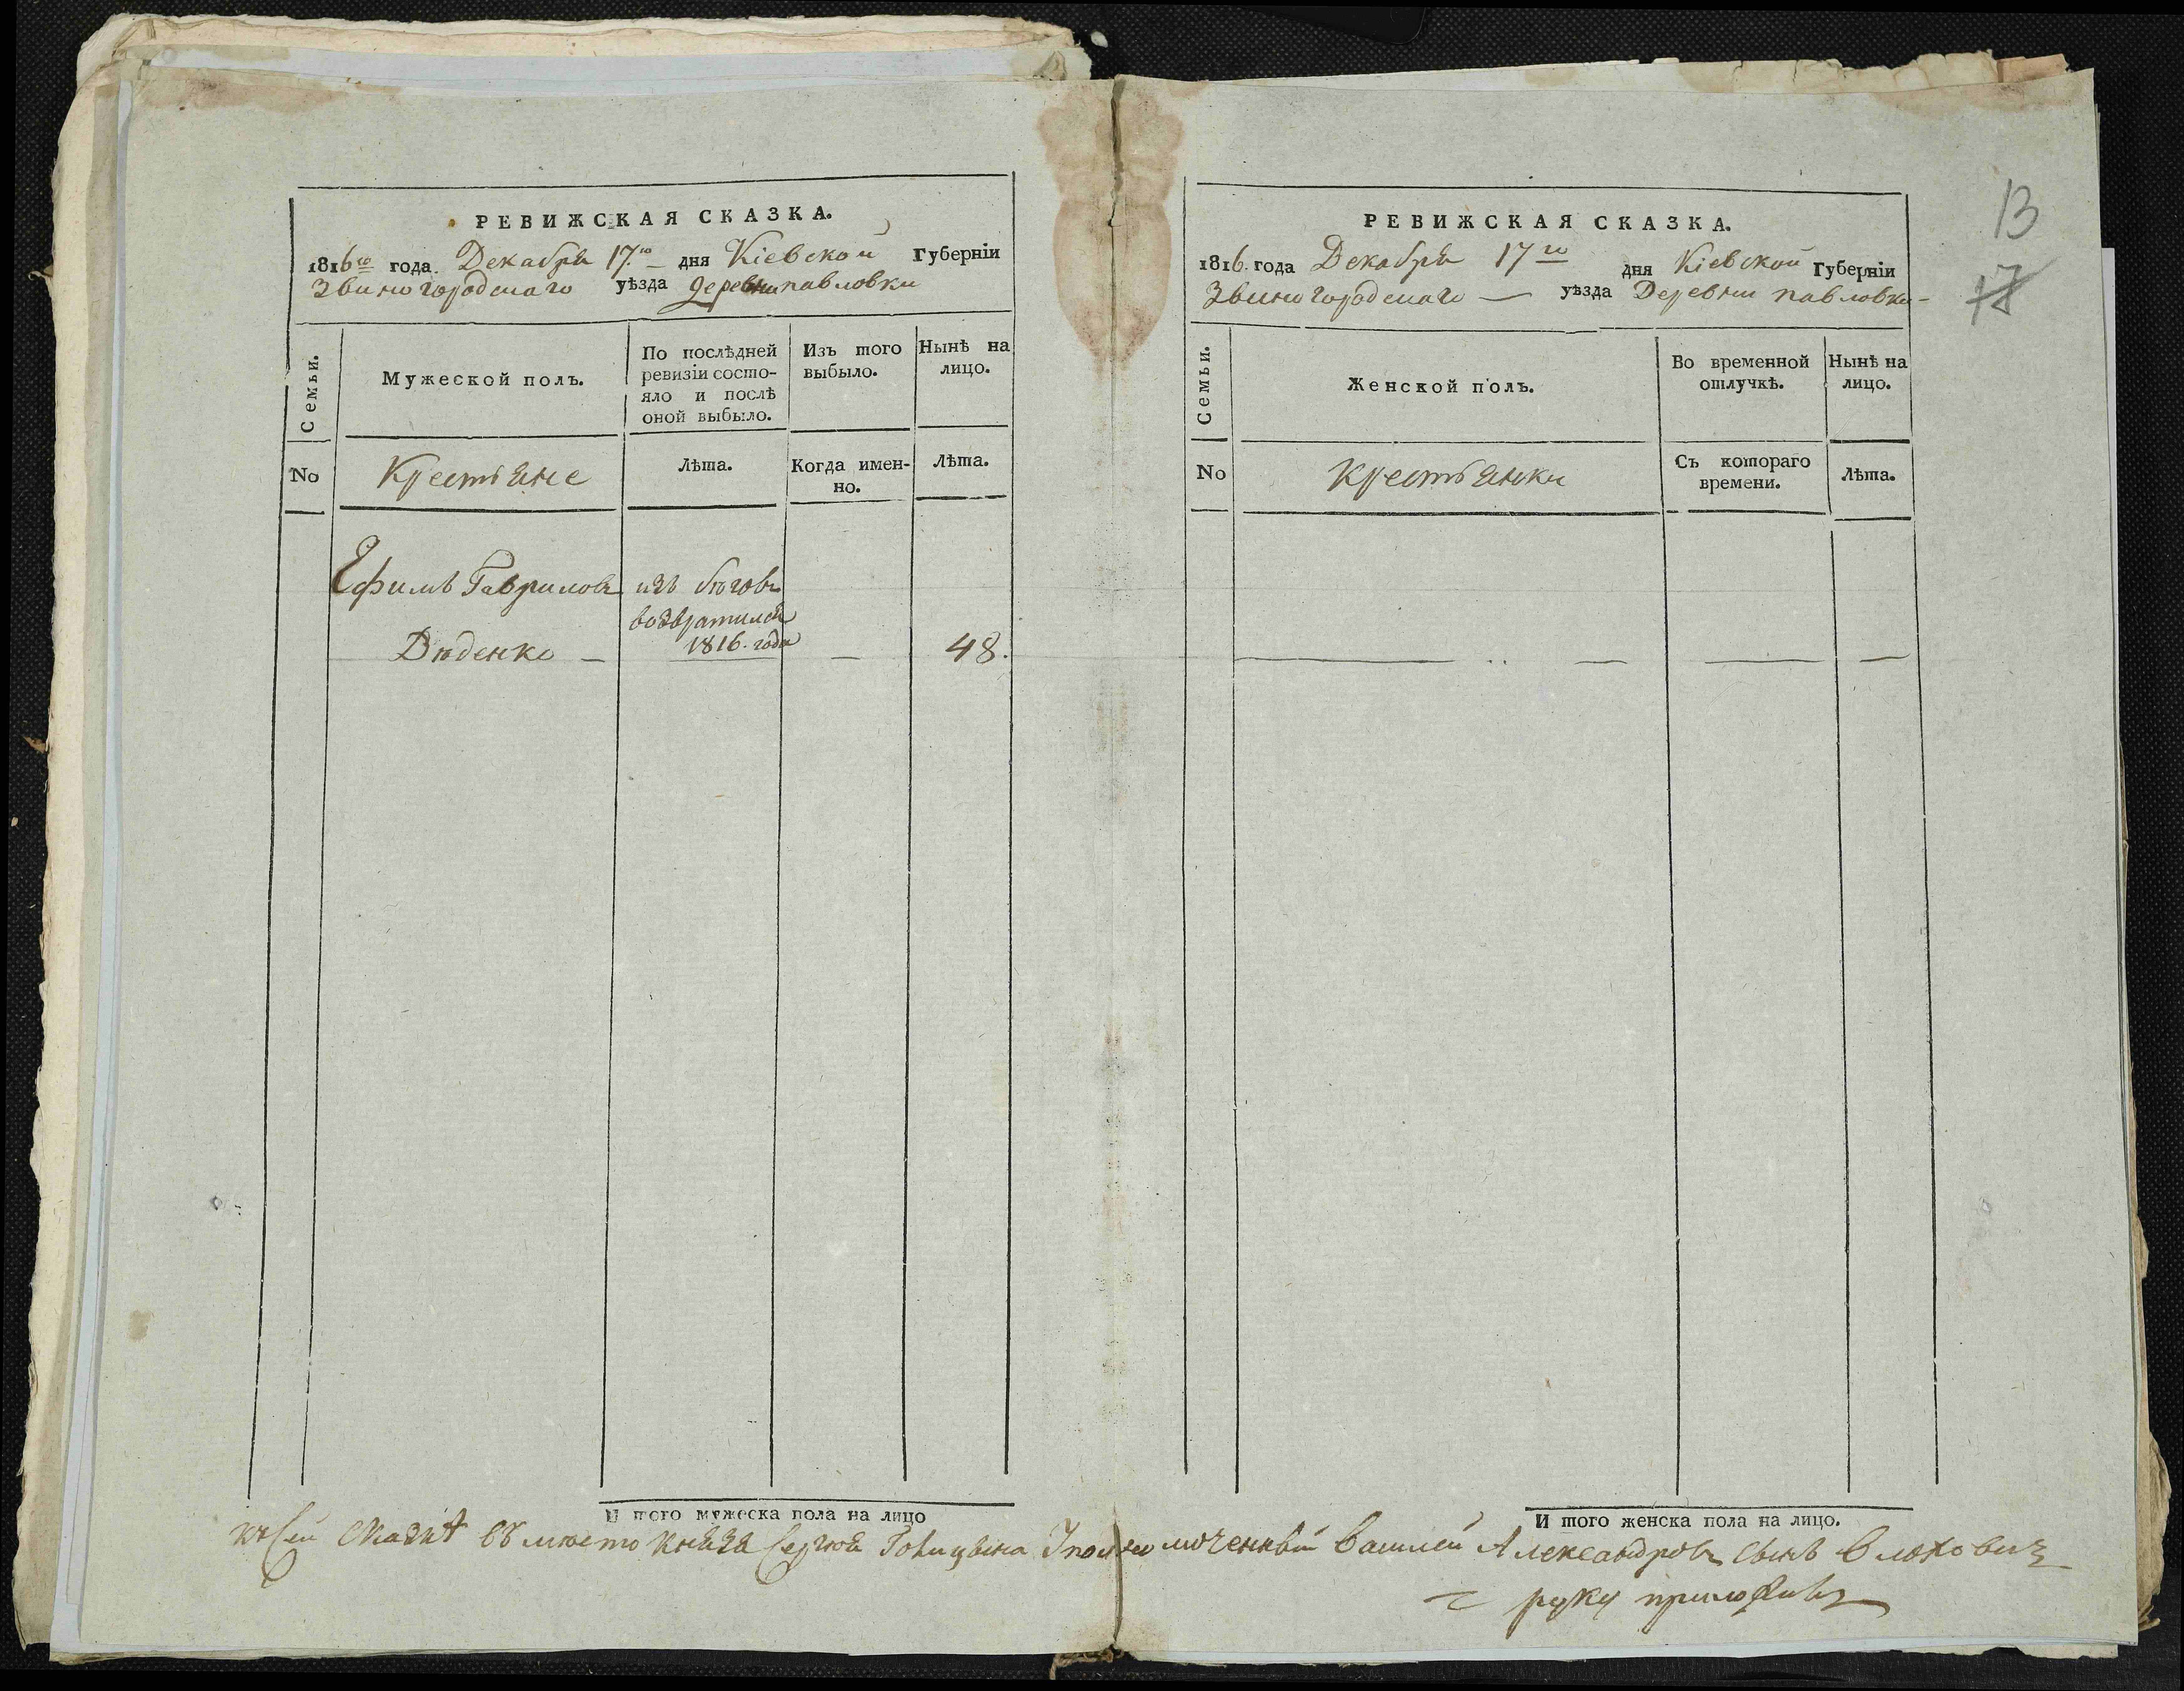 РЕВИЖСКАЯ СКАЗКА.
1816го года. Декабря 17.го дня Кіевской Губерніи
Звиногородскаго уѣзда деревни павловки
Семьи.
Мужеской полъ.
По послѣдней
ревизіи состо-
яло и послѣ
оной выбыло.
Изъ того
выбыло.
Нынѣ на
лицо.
No
Крестьяне
Лѣта.
Когда имен-
но.
Лѣта.
Ефимъ Гавриловъ изъ бѣговъ
возвратился
1816. года
Дѣденко — — 48.
И того мужеска пола на лицо
13
17
РЕВИЖСКАЯ СКАЗКА.
1816. года Декабря 17го дня Кіевской Губерніи
Звиногородскаго — уѣзда Деревни павловки-
Семьи.
Женской полъ.
Во временной
отлучкѣ.
Нынѣ на
лицо.
No
Крестьянки
Съ котораго
времени.
Лѣта.
И того женска пола на лицо.
к сей сказкѣ въ мѣсто Князя Сергѣя Голицына Уполномоченный Василей Александровъ сынъ
руку приложилъ